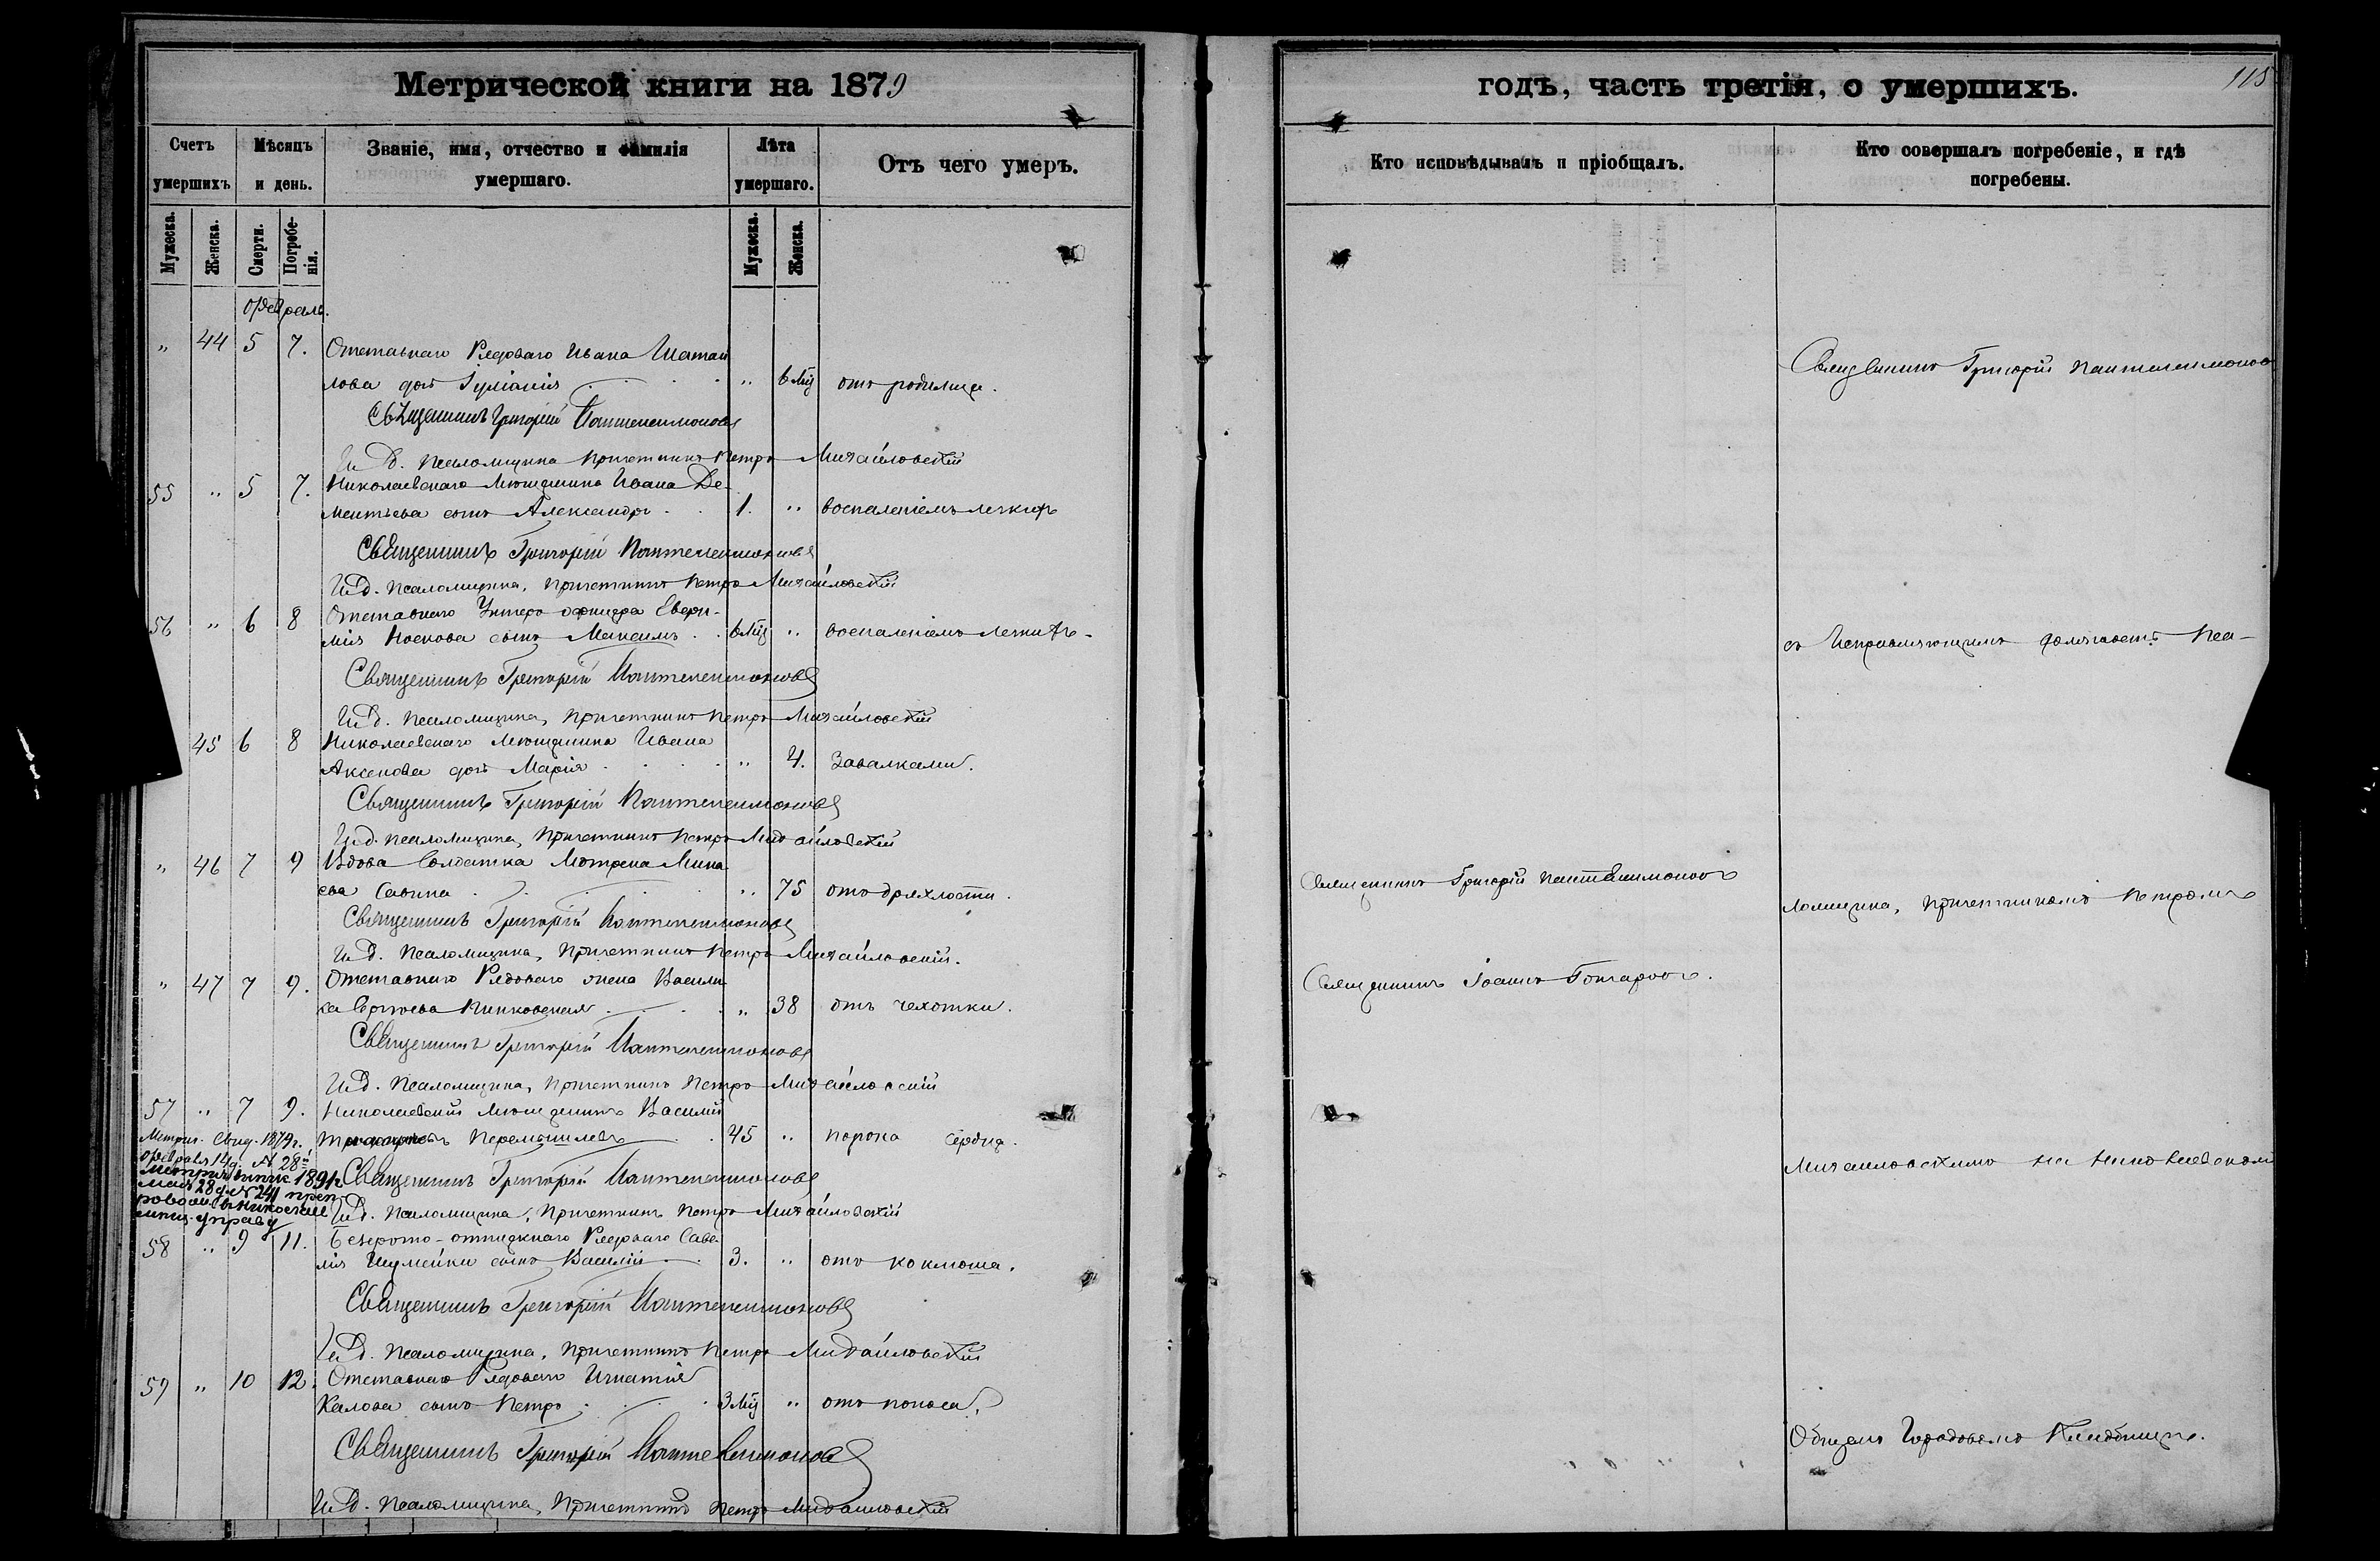 Метрической книги на 1879
годъ, часть третія, о умершихъ.
115
Счетъ умершихъ
Мѣсяцъ и день.
Званіе, имя, отчество и фамилія умершаго.
Лѣта умершаго.
Отъ чего умеръ.
Кто исповѣдывалъ и пріобщалъ.
Кто совершалъ погребеніе, и гдѣ погребены.
Мужеска.
Женска.
Смерти.
Погребе-
нія.
Мужеска.
Женска.
Февраль.
" 44 5 7. Отставнаго Рядоваго Ивана
лова дочь Іуліанія " 6 мц отъ родимца.
Священникъ Григорій Пантелеимоновъ
И. д. Псаломщика Причетникъ Петръ Михайловскій
55 " 5 7. Николаевскаго мѣщанина Ивана Де-
ментьева сынъ Александръ 1. " воспаленіемъ легкихъ
Священникъ Григорій Пантелеимоновъ
И. д. Псаломщика, Причетникъ Петръ Михайловскій
56 " 6 8 Отставнаго Унтеръ офицера Евѳи-
мія Носкова сынъ Максимъ 6 мц " воспаленіемъ легкихъ
Священникъ Григорій Пантелеимоновъ
И. д. Псаломщика, Причетникъ Петръ Михайловскій
45 6 8 Николаевскаго мѣщанина Ивана
Аксенова дочь Марія " 4. Завалками.
Священникъ Григорій Пантелеимоновъ
И. д. Псаломщика, Причетникъ Петръ Михайловскій
" 46 7 9 Вдова Солдатка Мотрона Мина
ева Савина " 75 отъ дряхлости.
Священникъ Григорій Пантелеимоновъ
И. д. Псаломщика, Причетникъ Петръ Михайловскій.
" 47 7 9. Отставнаго Рядоваго жена Васили
са Сергѣева " 38 отъ чехотки.
Священникъ Григорій Пантелеимоновъ
И. д. Псаломщика, Причетникъ Петръ Михайловскій
57 " 7 9. Николаевскій мѣщанинъ Василій
Перемышлевъ 45 " порока сердца.
Метрич. свид. 1879 г.
Февраля 14 д. № 28й
1891 г.
мая 28 д. № 241 преп
Николаев
управу
Священникъ Григорій Пантелеимоновъ
И. д. Псаломщика, Причетникъ Петръ Михайловскій
58 " 9 11. Безсрочно-отпускнаго Рядоваго Саве-
лія Шумейки сынъ Василій 3. " отъ коклюша.
Священникъ Григорій Пантелеимоновъ
И. д. Псаломщика, Причетникъ Петръ Михайловскій
59 " 10 12. Отставнаго Рядоваго Игнатія
Калова сынъ Петръ 3 мц " отъ поноса.
Священникъ Григорій Пантелеимоновъ
И. д. Псаломщика, Причетникъ Петръ Михайловскій
Священникъ Григорій Пантелеимоновъ
Священникъ Іоаннъ Гончаровъ.
Священникъ Григорій Пантелеимоновъ
съ Исправляющимъ должность Пса-
ломщика, Причетникомъ Петромъ
Михайловскимъ на Николаевскомъ
Общемъ Городовомъ Кладбищѣ.